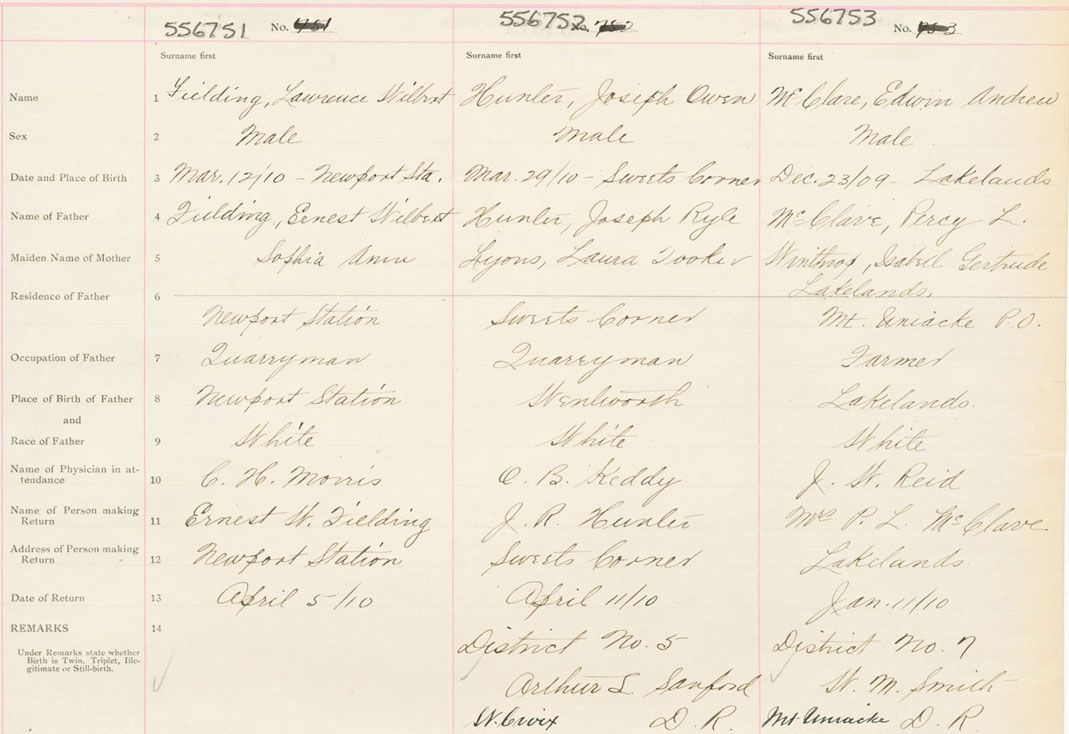 556751 No. 751 556752 No. 752 556753 No. 753
Surname first Surname first Surname first
Name 1 Fielding, Lawrence Wilbert Hunter, Joseph Owen McClare, Edwin Andrew
Sex 2 Male Male Male
Date and Place of Birth 3 Mar. 12/10 - Newport Sta. Mar. 29/10 - Sweets Corner Dec. 23/09 - Lakelands
Name of Father 4 Fielding, Ernest Wilbert Hunter, Joseph Ryle McClare, Percy L.
Maiden Name of Mother 5 Sophia Hunter, Lyons, Laura Tooker Winthrop, Isabell Gertrude
Lakelands.
Residence of Father 6
Newport Station Sweets Corner Mt. Uniacke P.O.
Occupation of Father 7 Quarryman Quarryman Farmer
Place of Birth of Father 8 Newport Station Wentworth Lakelands.
and
Race of Father 9 White White White
Name of Physician in at-
tendance 10 C. H. Morris O. B. Keddy J. W. Reid
Name of Person making
Return 11 Ernest W. Fielding J. R. Hunter Mrs P. L. McClare
Address of Person making
Return 12 Newport Station Sweets Corner Lakelands.
Date of Return 13 April 5/10 April 11/10 Jan. 11/10
REMARKS 14
Under Remarks state whether
Birth is Twin, Triplet, Ille-
gitimate or Still-birth.
District No. 5 District No. 7
Arthur L. Sanford W. M. Smith
St. Croix D. R. Mt Uniacke D. R